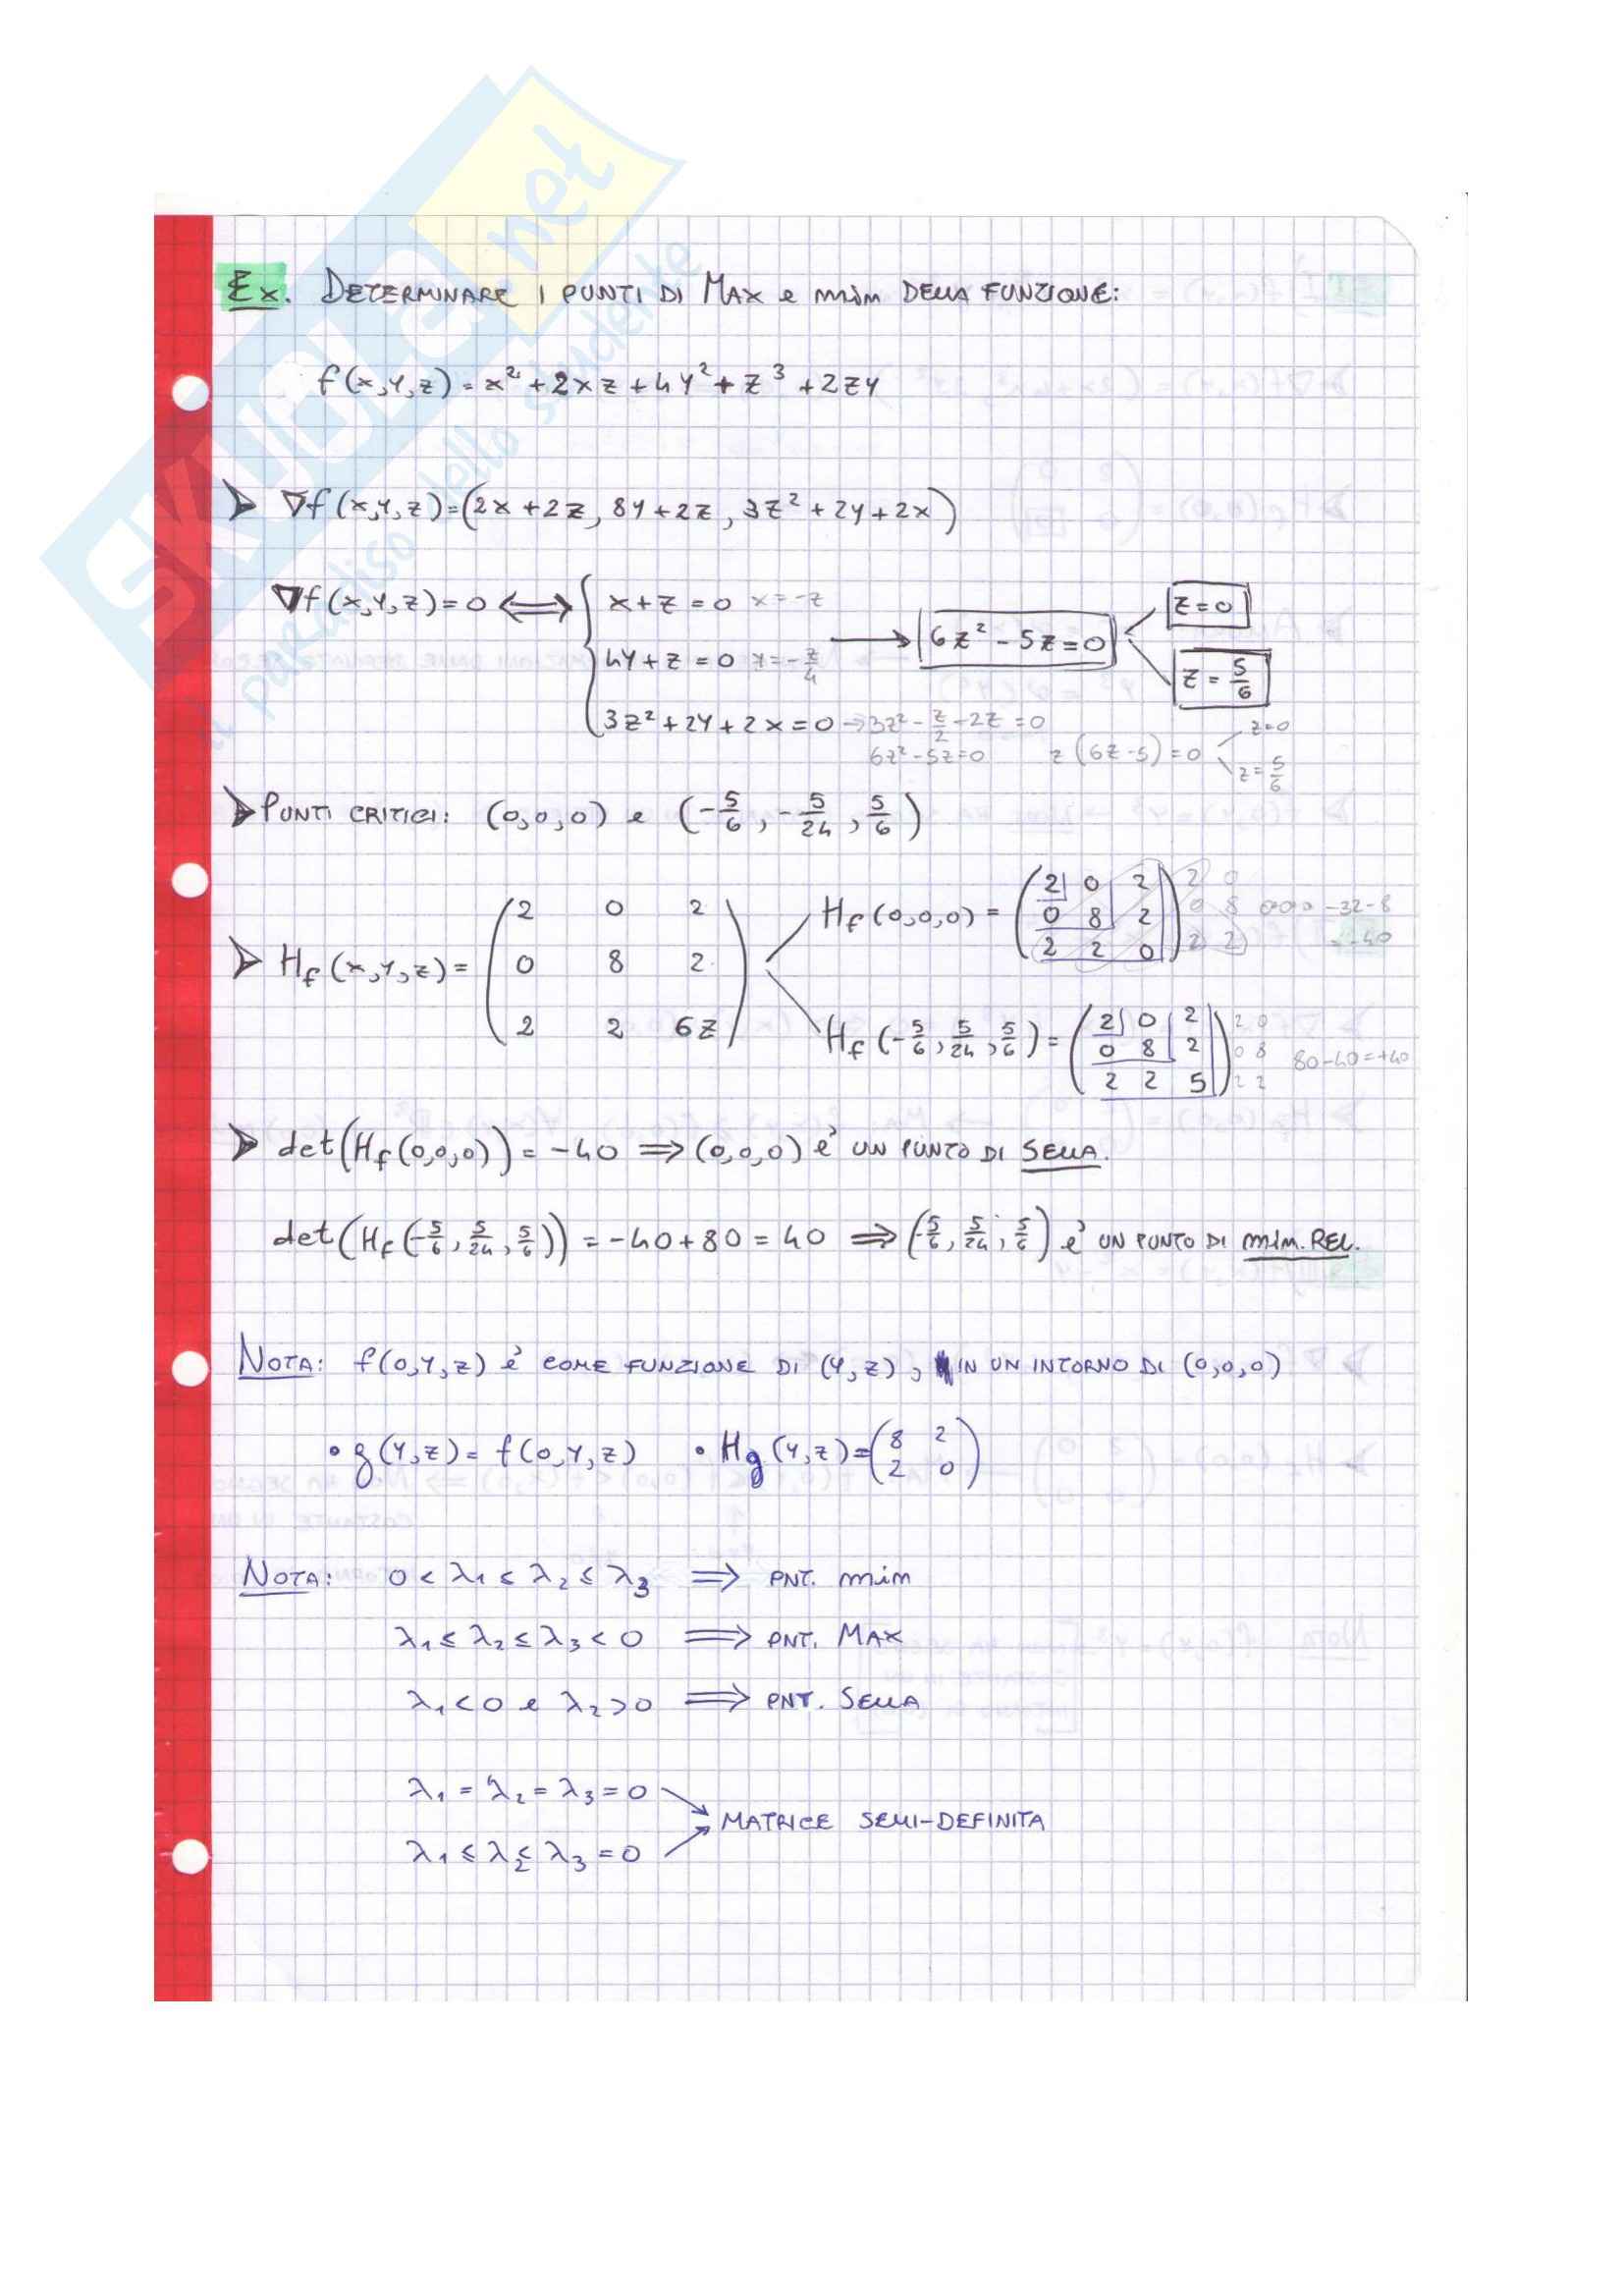 SKUOLA.net
il paradiso dello studente
Ex. DETERMINARE I PUNTI DI MAX e min DELLA FUNZIONE:
f(x,y,z) = x² + 2xz + 4y² + z³ + 2zy
∇f(x,y,z) = (2x + 2z, 8y + 2z, 3z² + 2y + 2x)
∇f(x,y,z) = 0 ⟺ { x + z = 0 x = -z
4y + z = 0 y = -z/4 → 6z² - 5z = 0 z = 0 z = 5/6
3z² + 2y + 2x = 0 → 3z² - z/2 - 2z = 0
6z² - 5z = 0 z(6z - 5) = 0 z = 0 z = 5/6
PUNTI CRITICI: (0,0,0) e (-5/6, -5/24, 5/6)
Hf(x,y,z) = (2 0 2
0 8 2
2 2 6z)
Hf(0,0,0) = (2 0 2
0 8 2
2 2 0) 2 0
0 8
2 2 -32-8
= -40
Hf(-5/6, 5/24, 5/6) = (2 0 2
0 8 2
2 2 5) 2 0
0 8
2 2 80-40=+40
det(Hf(0,0,0)) = -40 ⟹ (0,0,0) è UN PUNTO DI SELLA.
det(Hf(-5/6, 5/24, 5/6)) = -40 + 80 = 40 ⟹ (-5/6, 5/24, 5/6) è UN PUNTO DI min. REL.
NOTA: f(0,y,z) è COME FUNZIONE DI (y,z), IN UN INTORNO DI (0,0,0)
• g(y,z) = f(0,y,z) • Hg(y,z) = (8 2
2 0)
NOTA: 0 < λ1 ≤ λ2 ≤ λ3 ⟹ PNT. min
λ1 ≤ λ2 ≤ λ3 < 0 ⟹ PNT. MAX
λ1 < 0 e λ2 > 0 ⟹ PNT. SELLA
λ1 = λ2 = λ3 = 0
MATRICE SEMI-DEFINITA
λ1 ≤ λ2 ≤ λ3 = 0